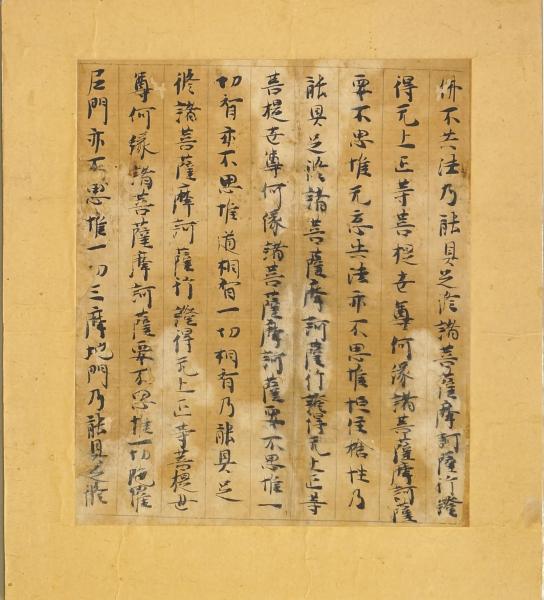 佛不共法乃能具足修諸菩薩摩訶薩行證
得无上正等菩提世尊何緣諸菩薩摩訶薩
要不思惟无忘失法亦不思惟恒住捨性乃
能具足修諸菩薩摩訶薩行證得无上正等
菩提世尊何緣諸菩薩摩訶薩要不思惟一
切智亦不思惟道相智一切相智乃能具足
修諸菩薩摩訶薩行證得无上正等菩提世
尊何緣諸菩薩摩訶薩要不思惟一切陁羅
尼門亦不思惟一切三摩地門乃能具足修